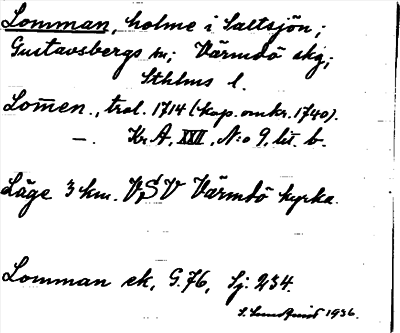 Lomman, holme i Saltsjön;
Gustavsbergs sn; Värmdö skg;
Sthlms l.
Lom̄en., trol. 1714 (kop. omkr. 1740).
— . Kr. A, XXII, N:o 9, lit. b.
Läge 3 km. VSV Värmdö kyrka.
Lomman ek, G.76, Sj: 234.
S. Sundquist 1936.